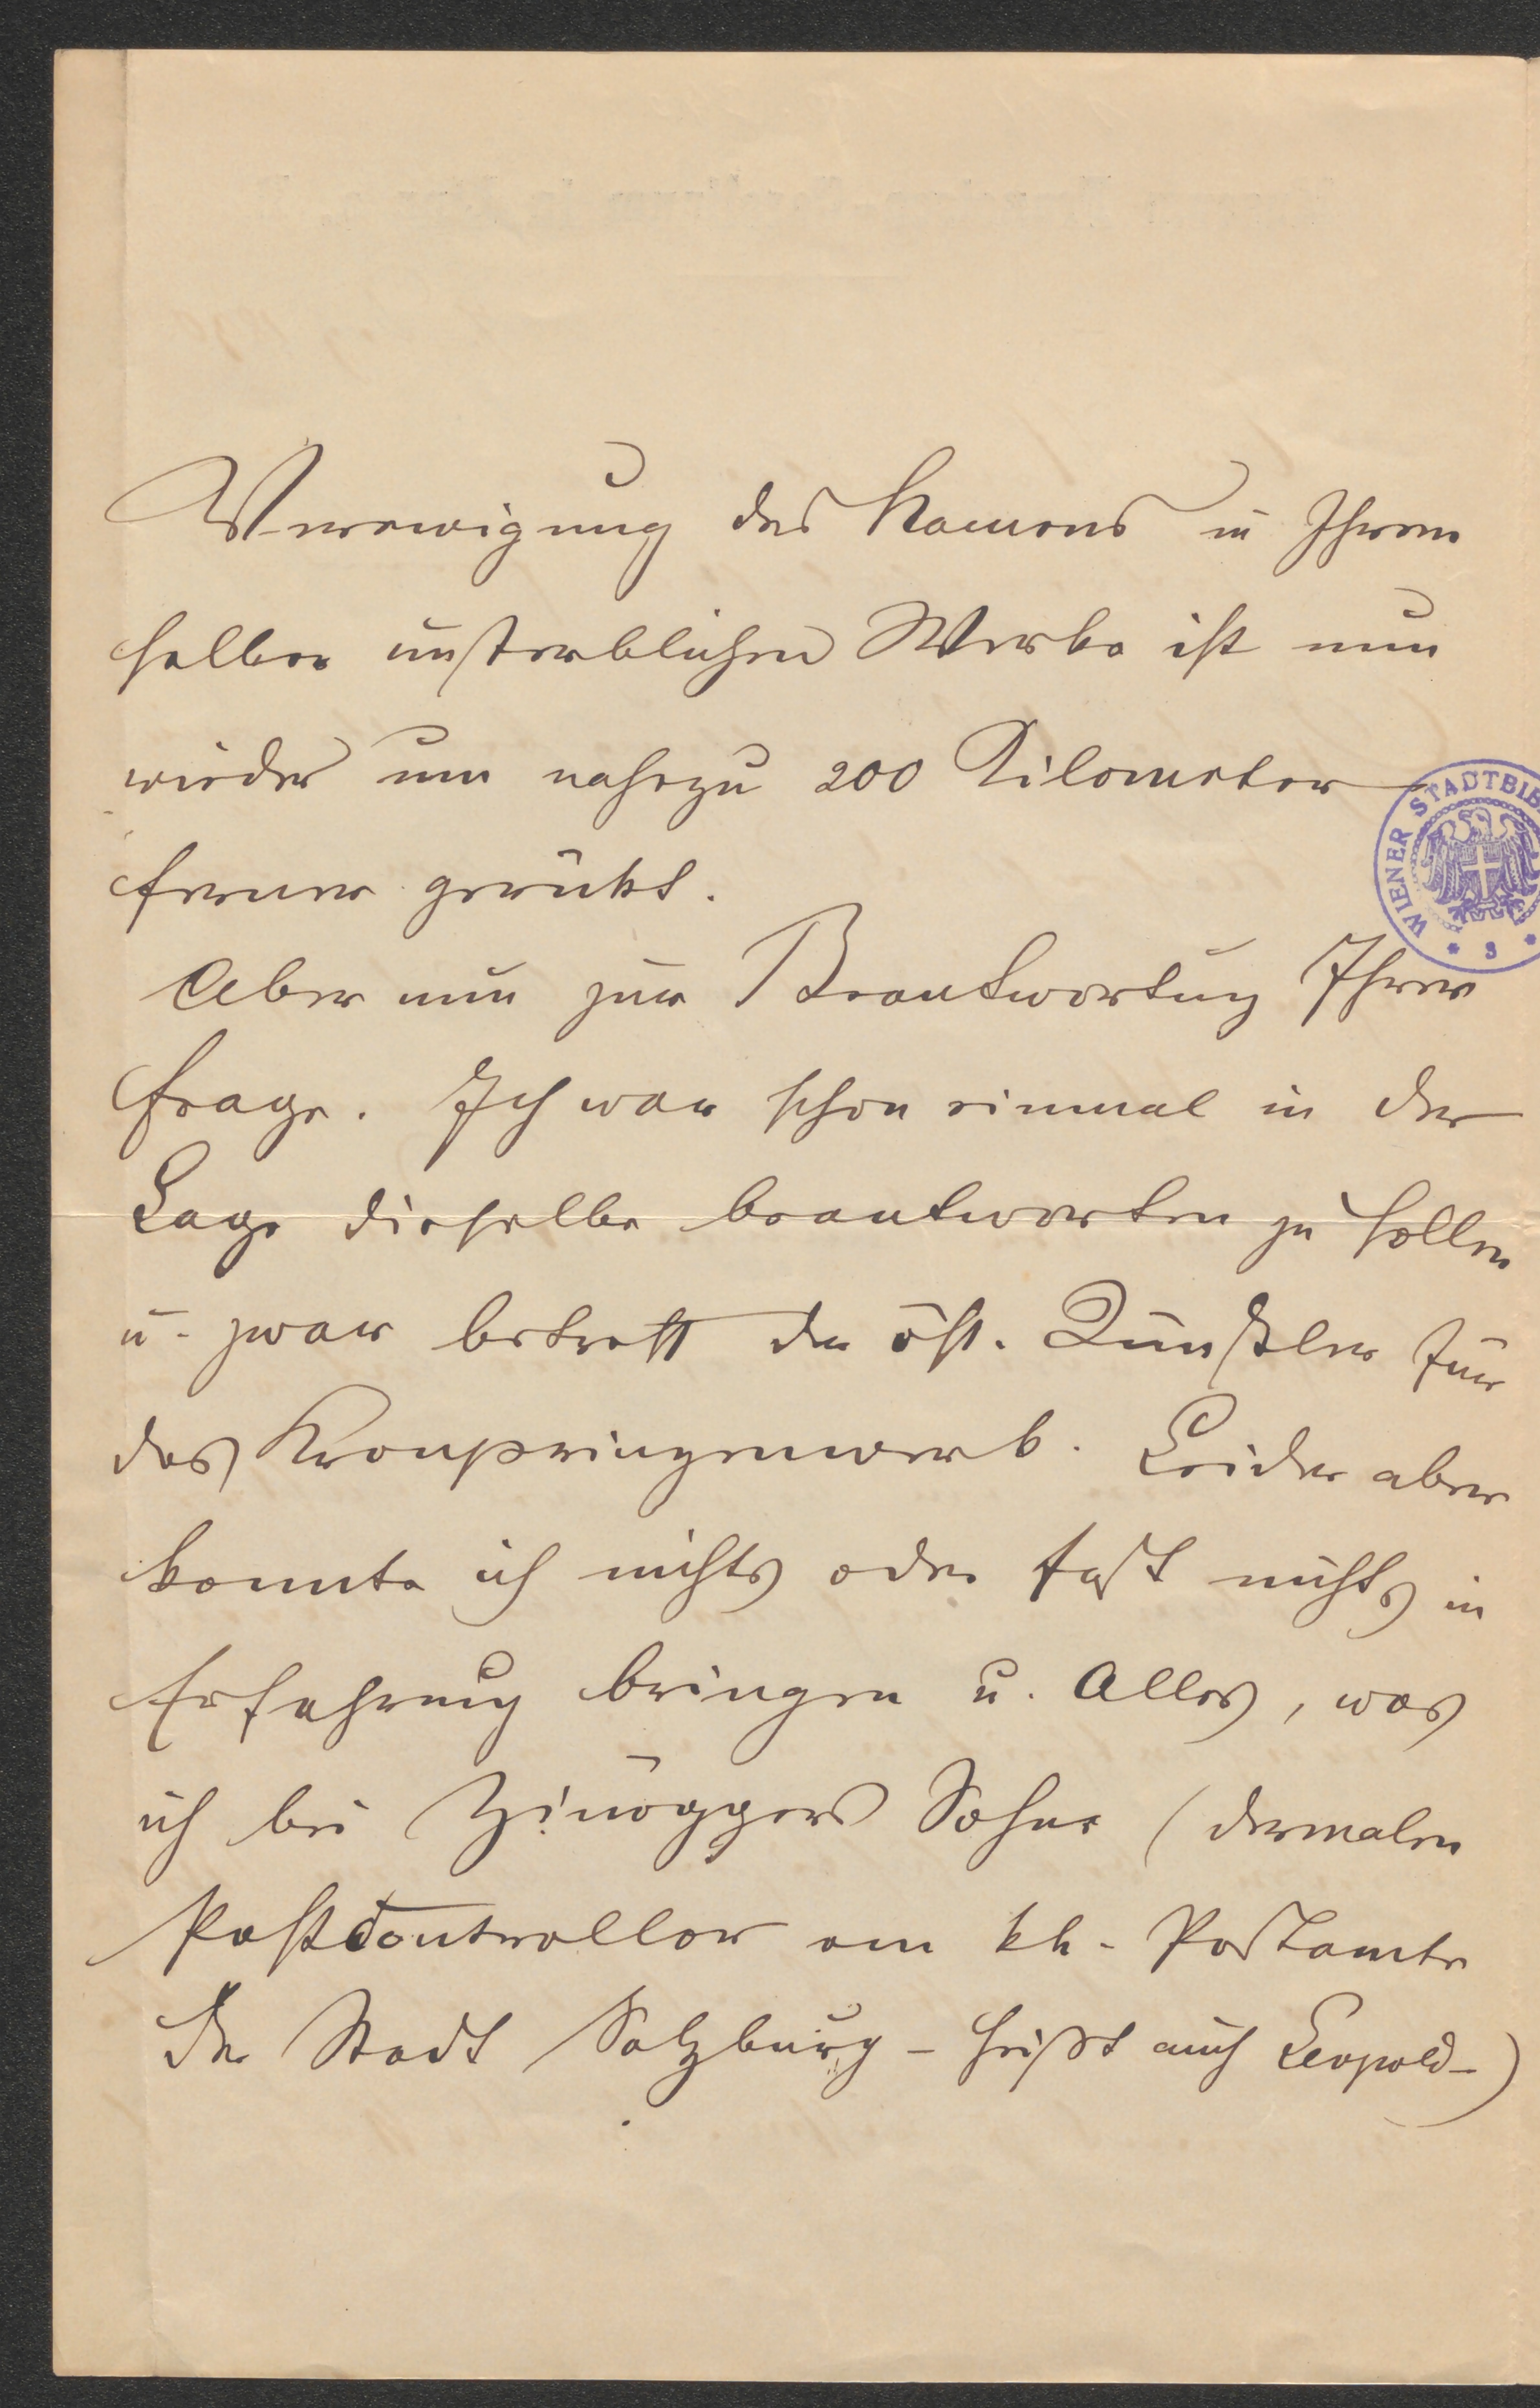 Verewigung des Namens in Ihrem
selber unsterblichen Werke ist nun
wieder um nahezu 200 Kilometer
ferner gerückt.
Aber nun zur Beantwortung Ihrer
Frage. Ich war schon einmal in der
Lage dieselbe beantworten zu sollen
u. zwar betreff der öst. Künstler für
das Kronprinzenwerk. Leider aber
konnte ich nichts oder fast nichts in
Erfahrung bringen u. Alles, was
ich bei Zinögger's Sohne (dermalen
Postcontrollor am kk. Postamte
der Stadt Salzburg - heißt auch Leopold -)
WIENER STADTBIB
* 3 *